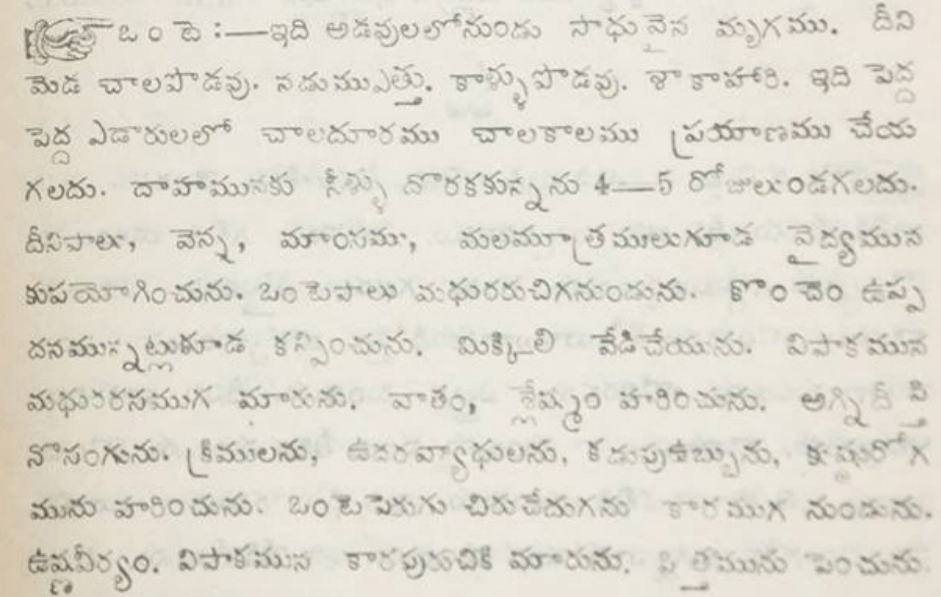 ఒంటె :—ఇది అడవులలోనుండు సాధువైన మృగము. దీని
మెడ చాలపొడవు. నడుముఎత్తు. కాళ్ళుపొడవు. శాకాహారి. ఇది పెద్ద
పెద్ద ఎడారులలో చాలదూరము చాలకాలము ప్రయాణము చేయ
గలదు. దాహమునకు నీళ్ళు దొరకకున్నను 4—5 రోజులుండగలదు.
దీనిపాలు, వెన్న, మాంసము, మలమూత్రములుగూడ వైద్యమున
కుపయోగించును. ఒంటెపాలు మధురరుచిగనుండును. కొంచెం ఉప్ప
దనమున్నట్లుకూడ కన్పించును. మిక్కిలి వేడిచేయును. విపాకమున
మధురరసముగ మారును. వాతం, శ్లేష్మం హరించును. అగ్నిదీప్తి
నొసంగును. క్రిములను, ఉదరవ్యాధులను, కడుపుఉబ్బును, కుష్ఠురోగ
మును హరించును. ఒంటెపెరుగు చిరుచేదుగను కారముగ నుండును.
ఉష్ణవీర్యం. విపాకమున కారపురుచికి మారును. పిత్తమును పెంచును.